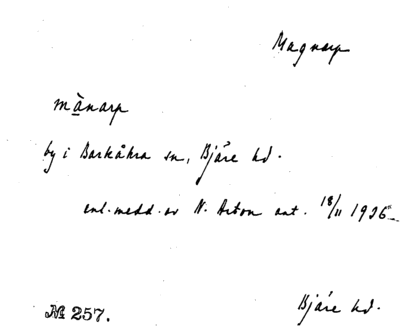 Magnarp
mànarp
by i Barkåkra sn, Bjäre hd.
enl. medd. av N. Arton ant. 18/11 1926
№ 257.
Bjäre hd.